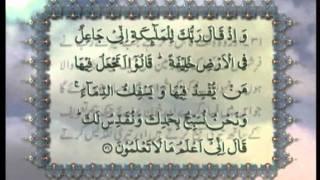 وَ اِذْ قَالَ رَبُّكَ لِلْمَلٰٓئِكَةِ اِنِّيْ جَاعِلٌ
فِي الْاَرْضِ خَلِيْفَةً ؕ قَالُوْۤا اَتَجْعَلُ فِيْهَا
مَنْ يُّفْسِدُ فِيْهَا وَ يَسْفِكُ الدِّمَآءَ ۚ
وَنَحْنُ نُسَبِّحُ بِحَمْدِكَ وَنُقَدِّسُ لَكَ ؕ
قَالَ اِنِّيْۤ اَعْلَمُ مَا لَا تَعْلَمُوْنَ